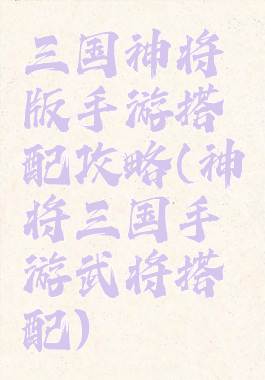 三国神将
版手游搭
配攻略(神
将三国手
游武将搭
配)